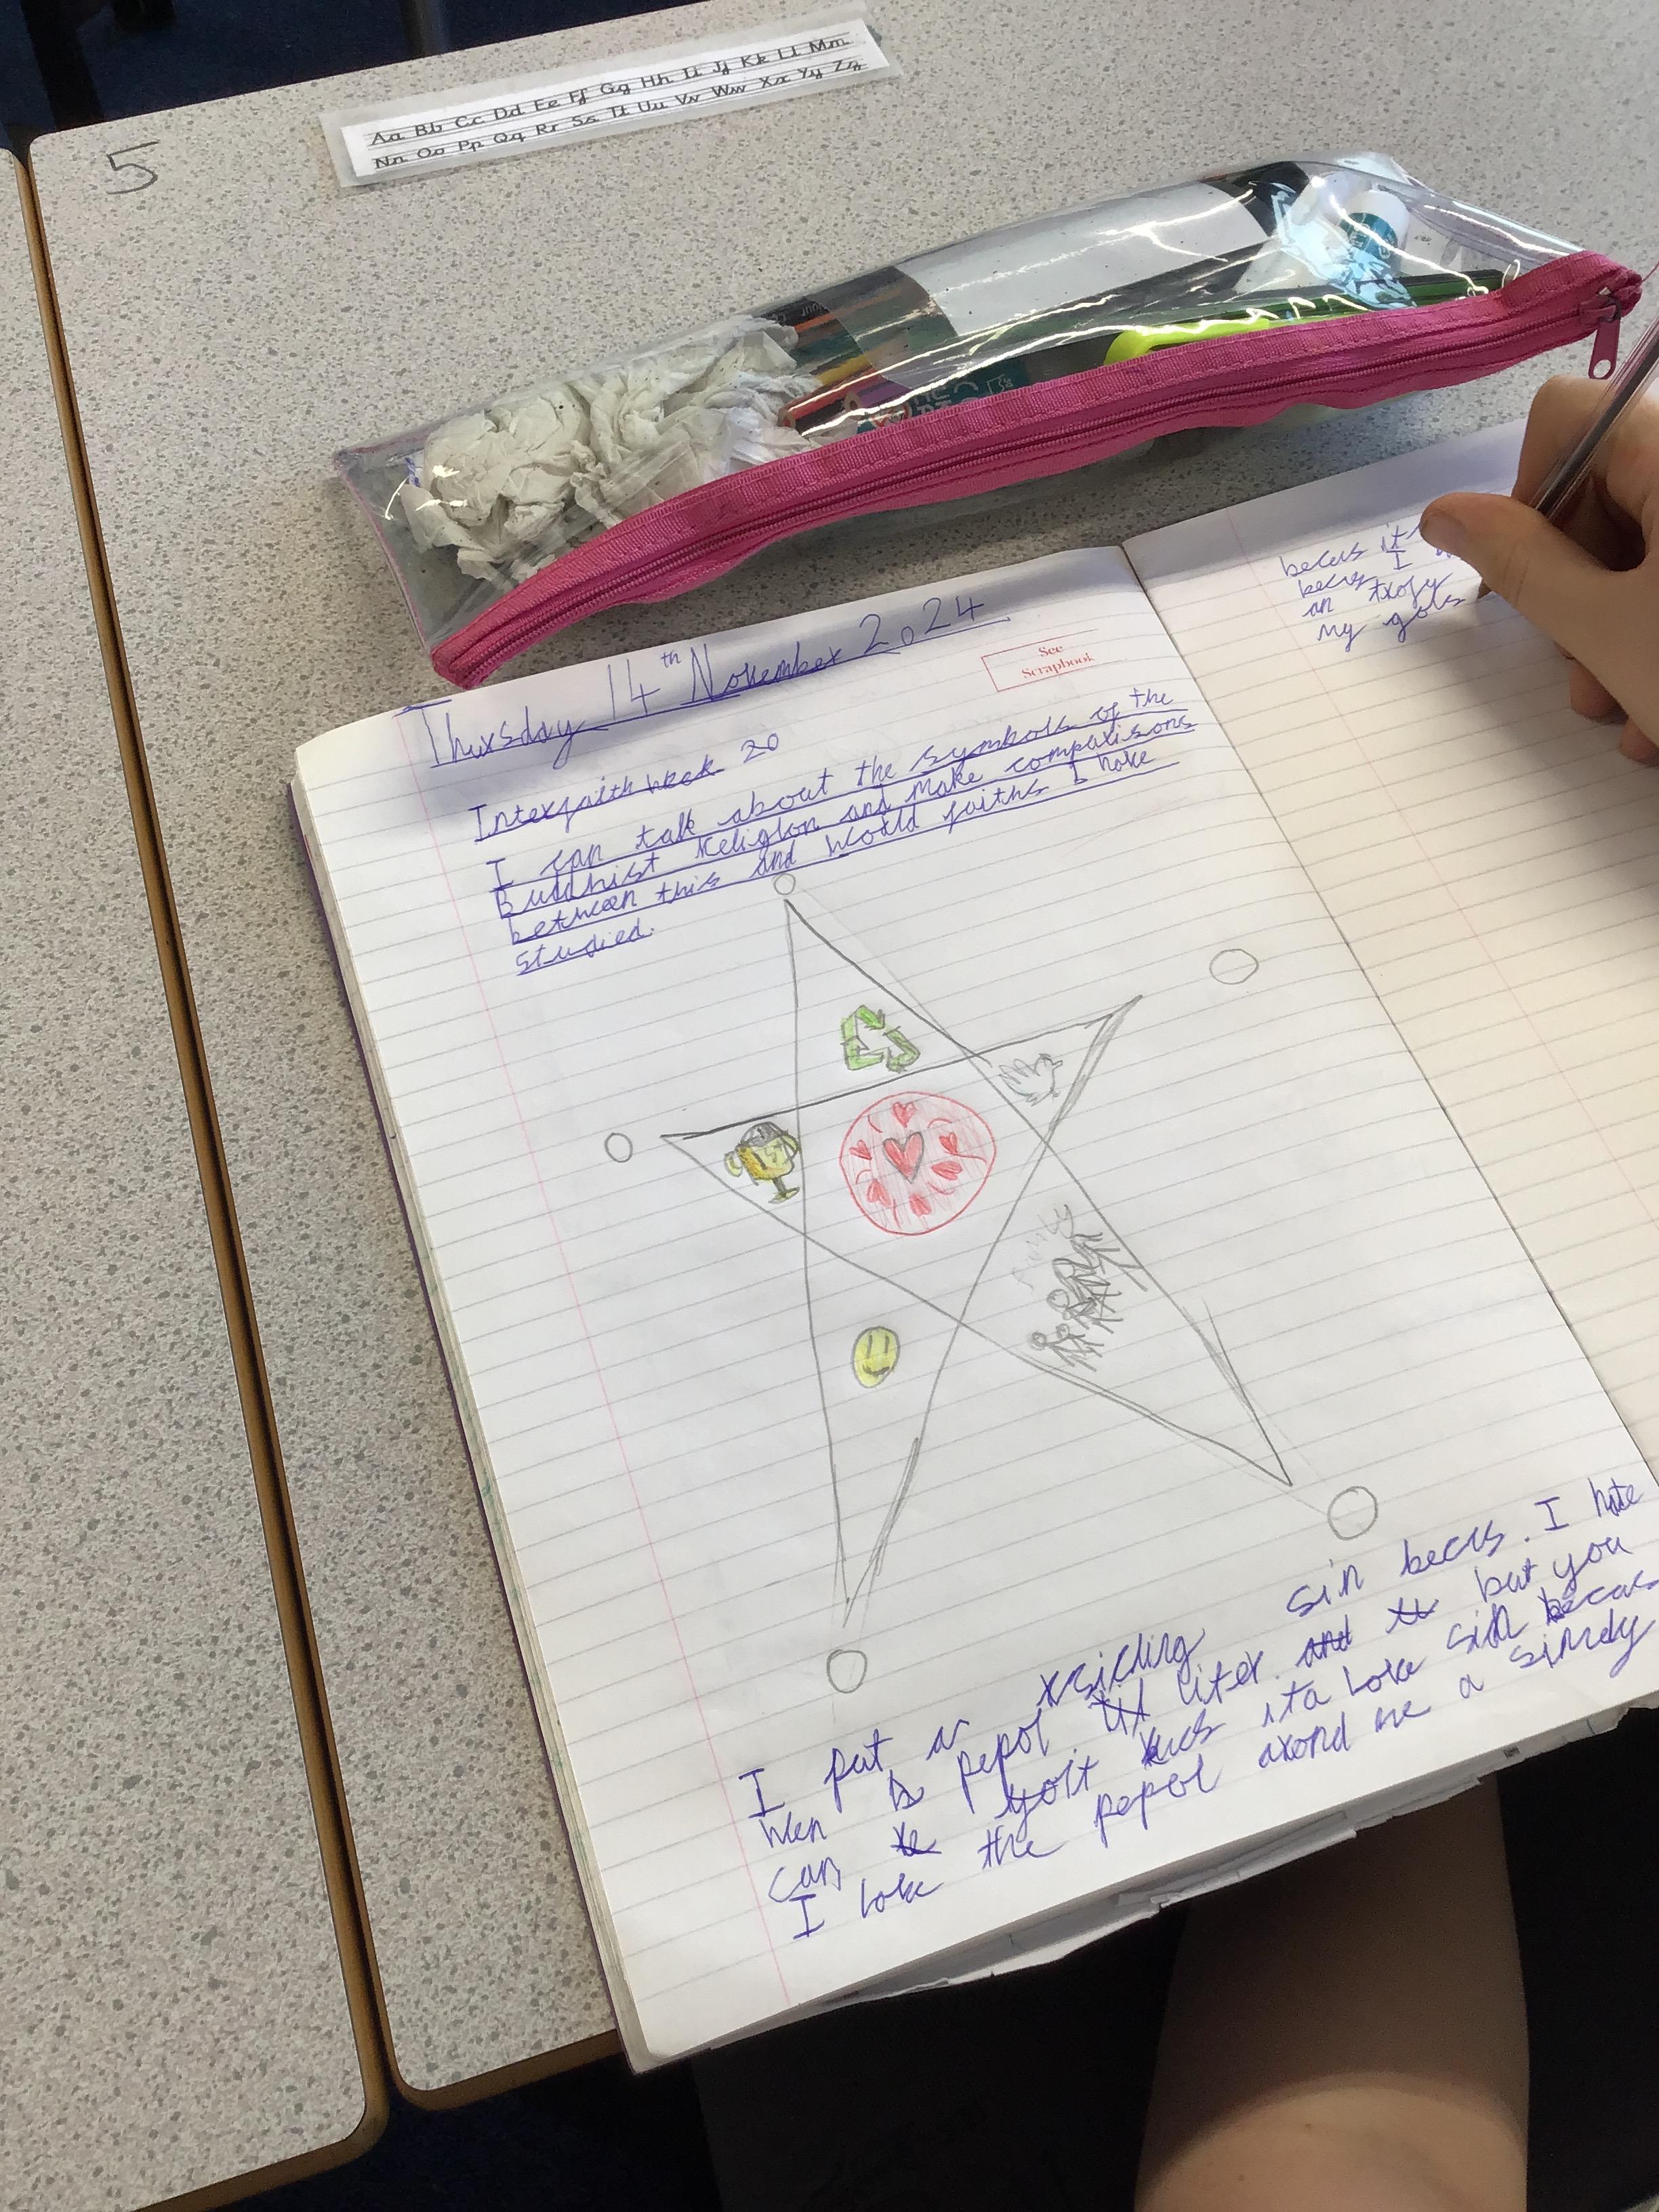 Aa Bb Cc Dd Ee Ff Gg Hh Ii Jj Kk Ll Mm
Nn Oo Pp Qq Rr Ss Tt Uu Vv Ww Xx Yy Zz
5
Thursday 14th November 2024
See
Scrapbook
Interfaith week 20
I can talk about the symbols of the
Buddhist Religion and make comparisons
between this and world faiths I have
studied.
I put a rsicling sin becus. I hate
wen pepol liter. and but you
can yoit ita love sin becaus
I love the pepol arond me a simdy
becus it
becus I
an trofy
my gols